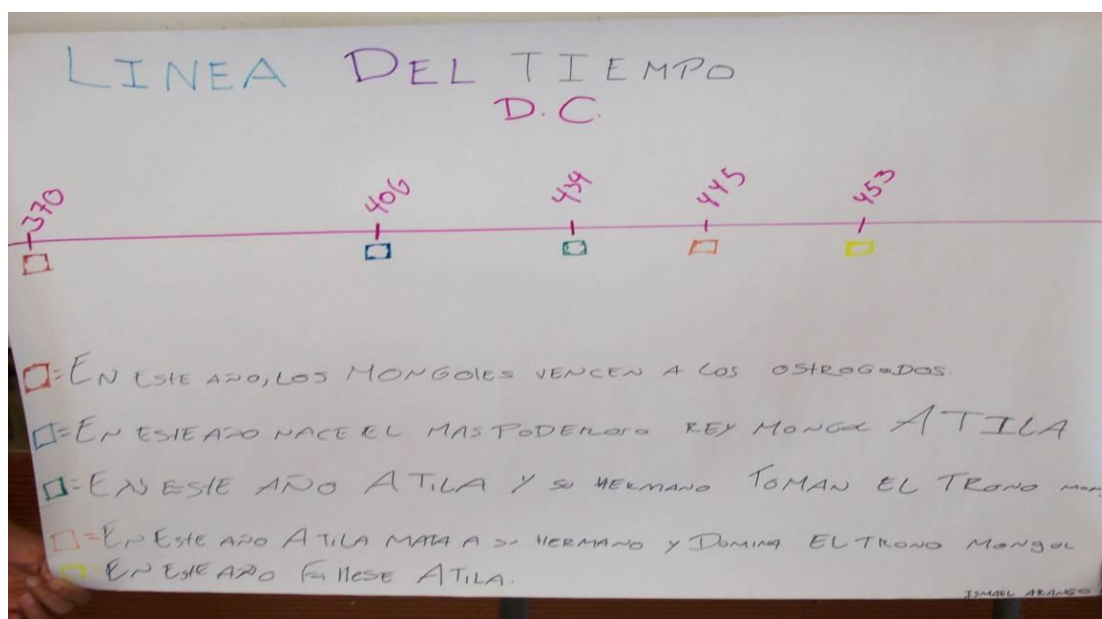 LINEA DEL TIEMPO
D.C.
370 406 434 445 453
= EN ESTE AÑO, LOS MONGOLES VENCEN A LOS OSTROGODOS.
= EN ESTE AÑO NACE EL MAS PODEROSO REY MONGOL ATILA
= EN ESTE AÑO ATILA Y SU HERMANO TOMAN EL TRONO
= EN ESTE AÑO ATILA MATA A SU HERMANO Y DOMINA EL TRONO MONGOL
EN ESTE AÑO FALLESE ATILA.
ISMAEL ARANGO